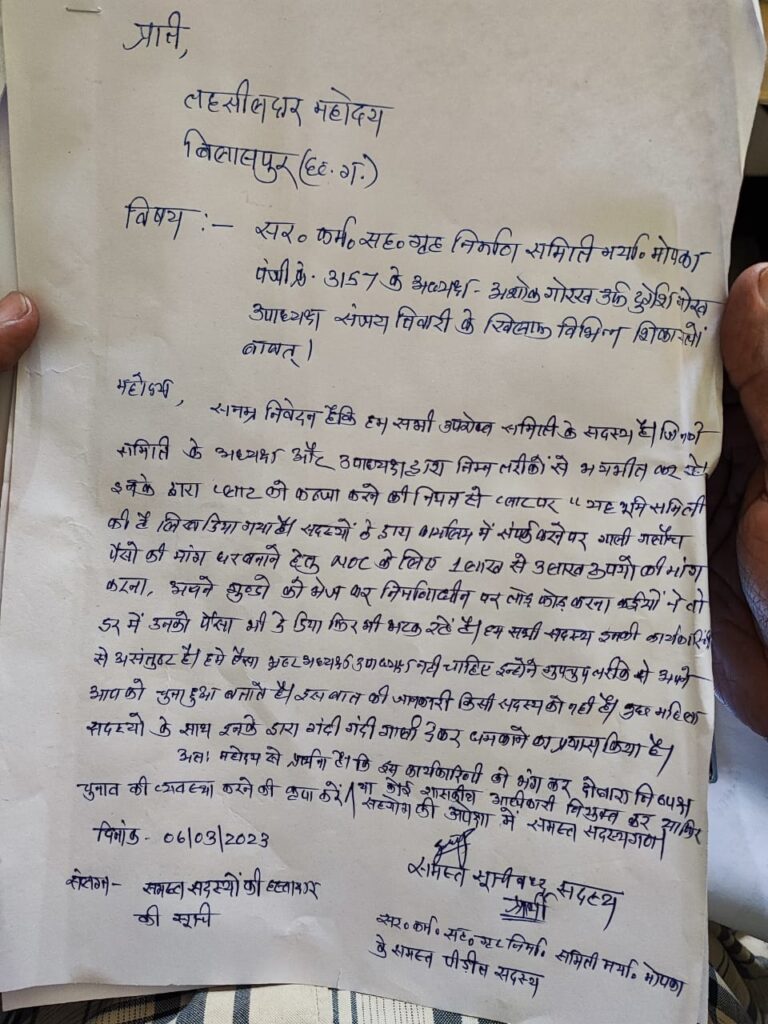 प्रति,
तहसीलदार महोदय
बिलासपुर (छ.ग.)
विषय :- सर० कर्म० सह० गृह निर्माण समिति मर्या० मोपका
पंजी क्रं. 3157 के अध्यक्ष - अशोक गोरख उर्फ दुर्गेश गोरख
उपाध्यक्ष संजय तिवारी के खिलाफ विभिन्न शिकायतों
बाबत्।
महोदय,
सनम्र निवेदन है कि हम सभी उपरोक्त समिति के सदस्य है। जिनको
समिति के अध्यक्ष और उपाध्यक्ष द्वारा निम्न तरीकों से भयभीत कर रहे।
इनके द्वारा प्लाट को कब्जा करने की नियत से प्लाट पर "यह भूमि समिति
की है लिख दिया गया है। सदस्यों के द्वारा कार्यालय में संपर्क करने पर गाली गलौच
पैसो की मांग घर बनाने हेतु NOC के लिए 1 लाख से 3 लाख रूपयों की मांग
करना, अपने गुण्डो को भेज कर निर्माणाधीन पर तोड़ फोड़ करना कईयों ने तो
डर में उनको पैसा भी दे दिया फिर भी भटक रहे है। हम सभी सदस्य इनकी कार्यकारिणी
से असंतुष्ट है। हमे ऐसा भ्रष्ट अध्यक्ष उपाध्यक्ष नही चाहिए इन्होने गुपचुप तरीके से अपने
आपको चुना हुआ बताते है। इस बात की जानकारी किसी सदस्य को नही है। कुछ महिला
सदस्यो के साथ इनके द्वारा गंदी गंदी गाली देकर धमकाने का प्रयास किया है।
अतः महोदय से प्रार्थना है। कि इस कार्यकारिणी को भंग कर दोबारा निष्पक्ष
चुनाव की व्यवस्था करने की कृपा करें। या कोई शासकीय अधिकारी नियुक्त कर
सहयोग की अपेक्षा में समस्त सदस्यगण।
दिनांक - 06/03/2023
समस्त सूचीबध्द सदस्य
प्रार्थी
संलग्न - समस्त सदस्यों की हस्ताक्षर
की सूची
सर० कर्म० सह० गृह निर्मा० समिति मर्या० मोपका
के समस्त पीड़ित सदस्य